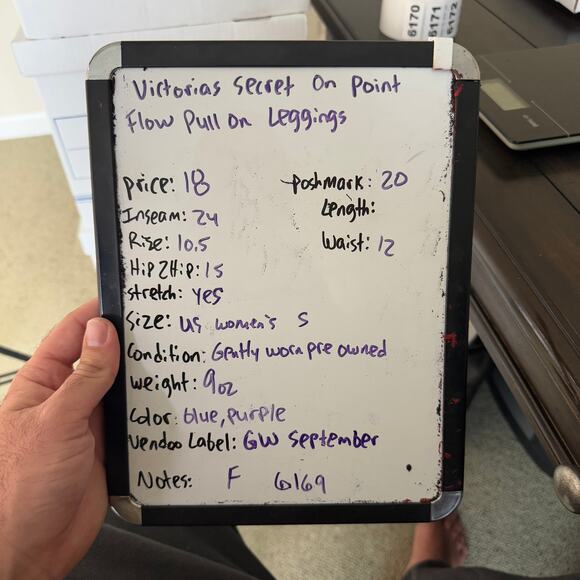 Victorias Secret On Point
Flow Pull On Leggings
price: 18
poshmark: 20
Inseam: 24
Length:
Rise: 10.5
Waist: 12
Hip 2 Hip: 15
stretch: yes
Size: US women's S
Condition: Gently worn pre owned
weight: 9oz
Color: blue, purple
Vendoo Label: GW September
Notes: F 6169
6170
6171
6172